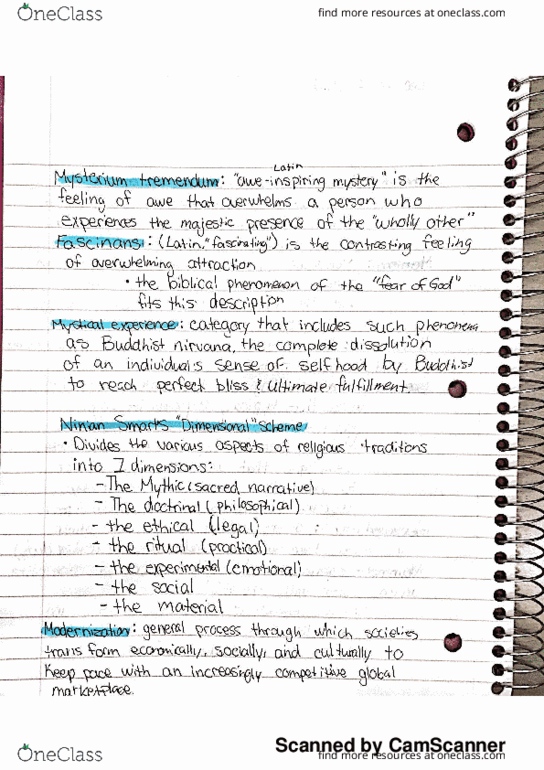 OneClass
find more resources at oneclass.com
Latin
Mysterium tremendum: "awe-inspiring mystery" is the
feeling of awe that overwhelms a person who
experiences the majestic presence of the "wholly other"
Fascinans: (Latin, "fascinating") is the contrasting feeling
of overwhelming attraction
• the biblical phenomenon of the "fear of God"
fits this description
Mystical experience: category that includes such phenomena
as Buddhist nirvana, the complete dissolution
of an individual's sense of selfhood by Buddhist
to reach perfect bliss & ultimate fulfillment
Ninian Smarts "Dimensional" scheme
• Divides the various aspects of religious traditions
into 7 dimensions:
- The Mythic (sacred narrative)
- The doctrinal (philosophical)
- the ethical (legal)
- the ritual (practical)
- the experimental (emotional)
- the social
- the material
Modernization: general process through which societies
transform economically, socially, and culturally to
keep pace with an increasingly competitive global
marketplace.
Scanned by CamScanner
OneClass
find more resources at oneclass.com